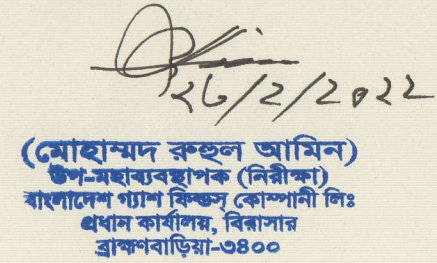 ২৮/২/২০২২
(মোহাম্মদ রুহুল আমিন)
উপ-মহাব্যবস্থাপক (নিরীক্ষা)
বাংলাদেশ গ্যাশ ফিল্ডস্ কোম্পানী লিঃ
প্রধান কার্যালয়, বিরাসার
ব্রাহ্মণবাড়িয়া-৩৪০০